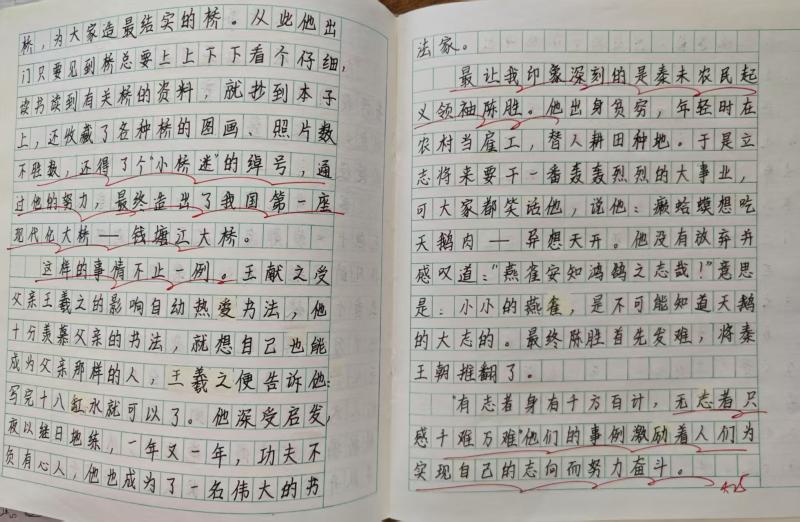 桥，为大家造最结实的桥。从此他出
门只要见到桥总要上上下下看个仔细，
读书读到有关桥的资料，就抄到本子
上，还收藏了各种桥的图画、照片数
不胜数，还得了个"小桥迷"的绰号，通
过他的努力，最终造出了我国第一座
现代化大桥——钱塘江大桥。
这样的事情不止一例。王献之受
父亲王羲之的影响自动热爱书法，他
十分羡慕父亲的书法，就想自己也能
成为父亲那样的人，王羲之便告诉他：
写完十八缸水就可以了。他深受启发，
夜以继日地练，一年又一年，功夫不
负有心人，他也成为了一名伟大的书
法家。
最让我印象深刻的是秦末农民起
义领袖陈胜。他出身贫穷，年轻时在
农村当雇工，替人耕田种地。于是立
志将来要干一番轰轰烈烈的大事业，
可大家都笑话他，说他：癞蛤蟆想吃
天鹅肉——异想天开。他没有放弃并
感叹道："燕雀安知鸿鹄之志哉！"意思
是：小小的燕雀，是不可能知道天鹅
的大志的。最终陈胜首先发难，将秦
王朝推翻了。
"有志者身有千方百计，无志者只
感千难万难"他们的事例激励着人们为
实现自己的志向而努力奋斗。